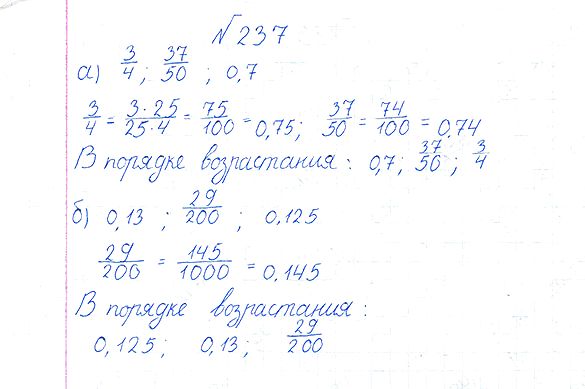 №237
а) 3/4 ; 37/50 ; 0,7
3/4 = 3·25/25·4 = 75/100 = 0,75; 37/50 = 74/100 = 0,74
В порядке возрастания: 0,7; 37/50 ; 3/4
б) 0,13 ; 29/200 ; 0,125
29/200 = 145/1000 = 0,145
В порядке возрастания:
0,125; 0,13; 29/200